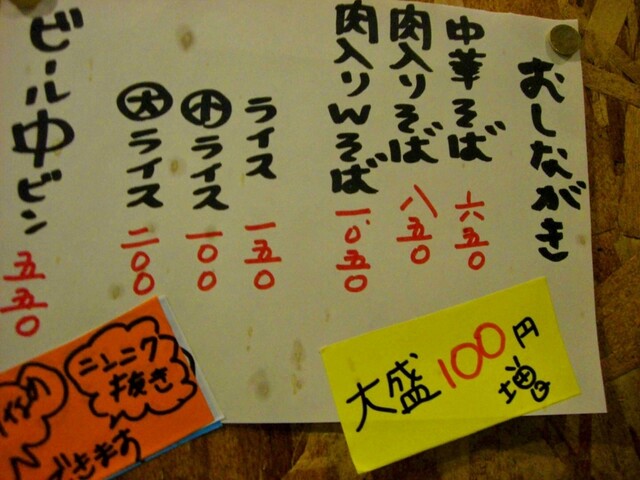 おしながき
中華そば 六五〇
肉入りそば 八五〇
肉入りWそば 一〇五〇
ライス 一五〇
小ライス 一〇〇
大ライス 二〇〇
ビール中ビン 五五〇
大盛100円増
ニンニク
抜き
できます